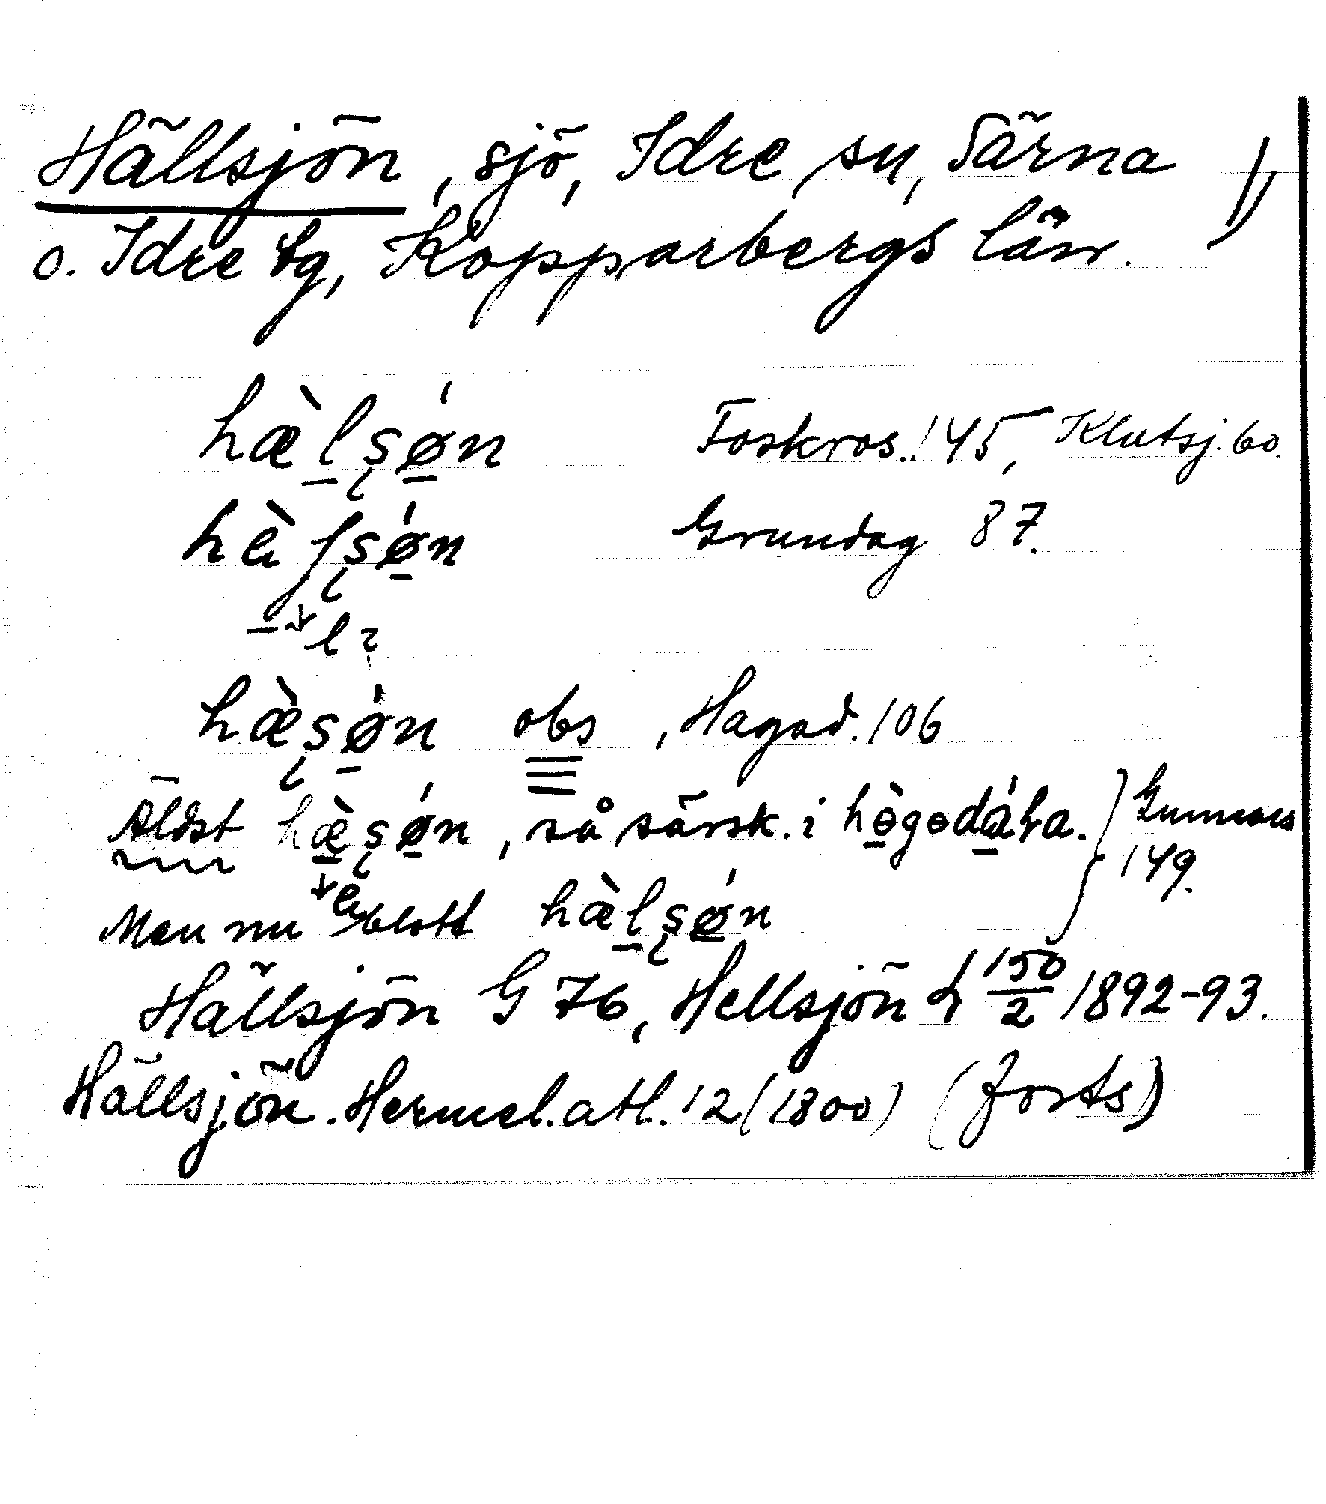 Hällsjön, sjö, Idre sn, Särna
o. Idre tg, Kopparbergs län.
hæ̀l̠ʂǿ̠n Foskros. 145, Klutsj. 60.
hæ̀ʃʂǿ̠n Grundag 87.
l?
hæ̀ʂǿ̠n obs, Hagad. 106
Äldst hæ̠̀ʂǿ̠n, så särsk. i
Men nu blott hæ̀l̠ʂǿ̠n 149.
Hällsjön G 76, Hellsjön 150/2 1892-93.
Hällsjön. Hermel. atl. 12 (1800) (forts)